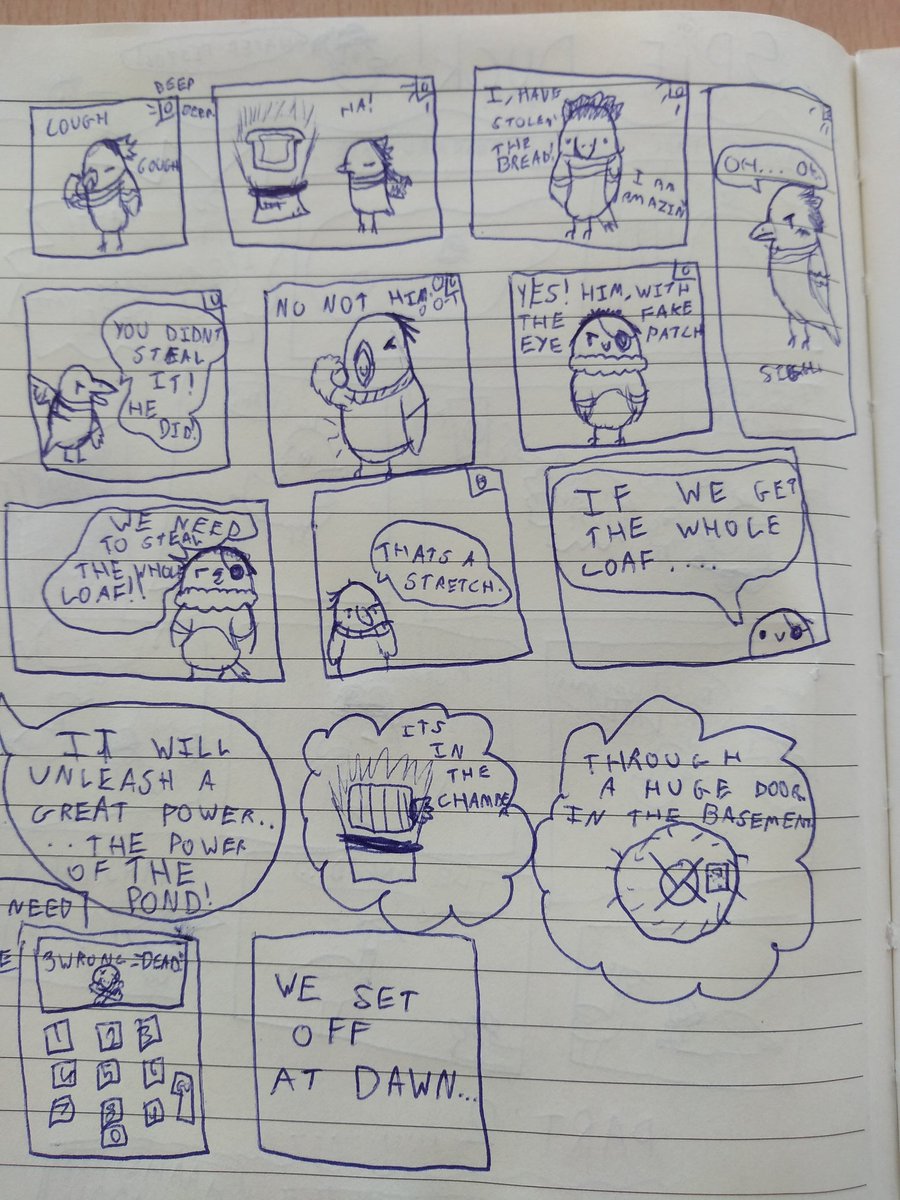 COUGH
BEEP
BEEP
COUGH
HA!
I, HAVE
STOLEN
THE
BREAD!
I AM
AMAZIN
OH... OK
SIGH
YOU DIDNT
STEAL
IT!
HE
DID!
NO NOT HIM
YES! HIM, WITH
THE FAKE
EYE PATCH
WE NEED
TO STEAL
THE WHOLE
LOAF!!
THATS A
STRETCH.
IF WE GET
THE WHOLE
LOAF ....
IT WILL
UNLEASH A
GREAT POWER..
..THE POWER
OF THE
POND!
ITS
IN
THE
CHAMBER
THROUGH
A HUGE DOOR
IN THE BASEMENT
NEED
3 WRONG = DEAD
1 2 3
7 8
0
WE SET
OFF
AT DAWN...